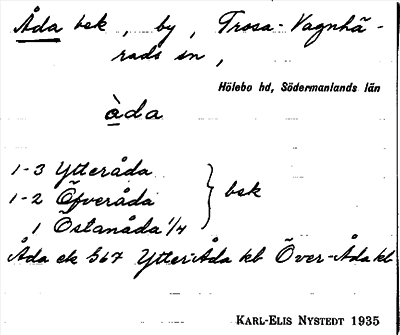 Åda bsk, by, Trosa-Vagnhä-
rads sn,
Hölebo hd, Södermanlands län
àda
1-3 Ytteråda
1-2 Öfveråda } bsk
1 Östanåda 1/4
Åda ek 567 Ytter-Åda kb Över-Åda kb
KARL-ELIS NYSTEDT 1935